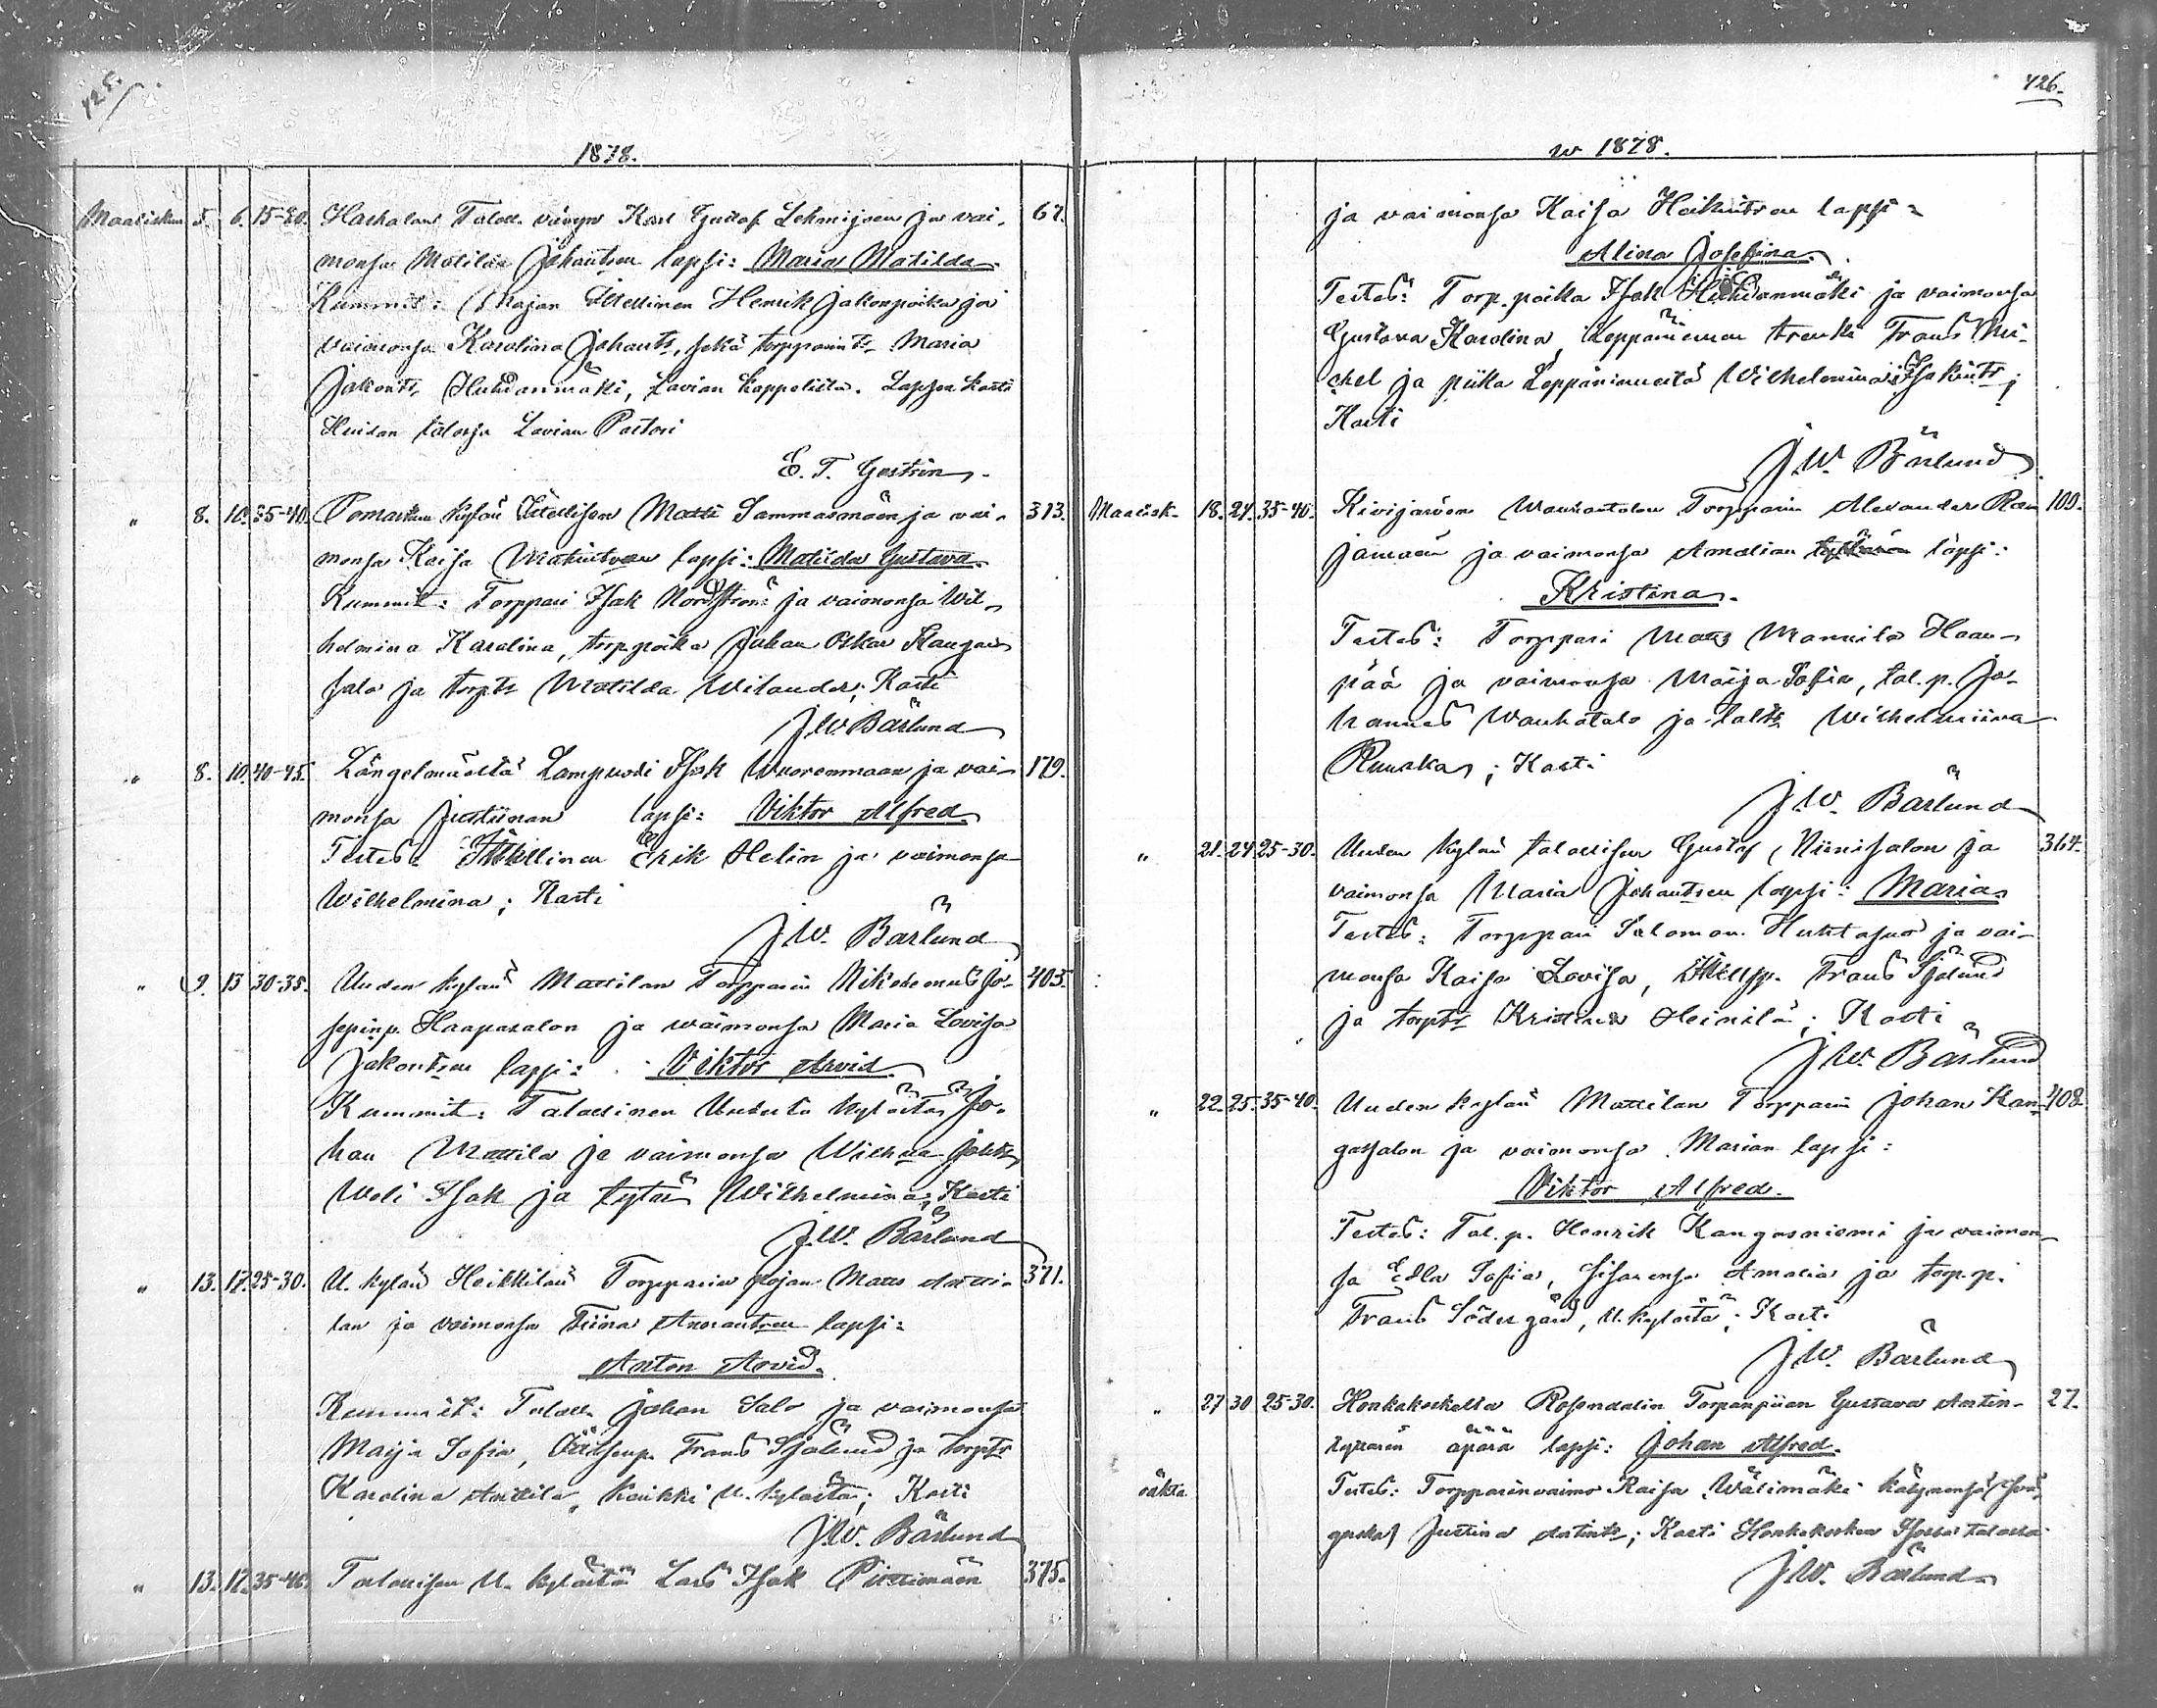 425.
1878.
Maaliskuu 5. 6. 15-20. Talon vävyn Karl Gustaf Lehmijoen ja vai- 67.
monsa Matildan Johantr. lapsi: Maria Matilda
Kummit: Itsellinen Henrik Jakonpoika ja
vaimonsa Karolina Johantr, sekä torpparintr Maria
Jakontr. Huhdanmäki, Lavian kappelista. Lapsen kasti
talossa Lavian Pastori
E. T. Gestrin.
" 8. 10. 35-40. Pomarkun kylän Itsellisen Matti Sammasmäen ja vai- 313.
monsa Kaisa lapsi: Matilda Gustava.
Kummit: Torppari Isak Nordström ja vaimonsa Wil-
helmina Karolina, torp.poika Juhan Oskar Kangas
salo ja torptr Matilda Wilander; Kasti
J.W. Bärlund
" 8. 10. 40-45. Längelmäeltä Lampuodi Isak Wuorenmaan ja vai- 179.
monsa Justiinan lapsi: Viktor Alfred
Testes: Itsellinen Erik Helin ja vaimonsa
Wilhelmina; Kasti
J.W. Bärlund
" 9. 13 30-35. Uuden kylän Mattilan Torpparin Nikodemus Jo- 403.
sepinp. Haapasalon ja waimonsa Maria Lovisa
Jakontr. lapsi: Viktor Arvid
Kummit: Talollinen Uudesta kylästä Jo-
han Mattila ja vaimonsa
Weli Isak ja tytär Wilhelmina; Kasti
J.W. Bärlund
" 13. 17. 25-30. U. kylän Heikkilän Torpparin pojan Matts Antti- 371.
lan ja vaimonsa Tiina lapsi:
Anton Arvid.
Kummit: Talon Johan Salo ja vaimonsa
Maija Sofia, Frans Sjölund ja torptr
Karolina Anttila, kaikki U. kylästä; Kasti
J.W. Bärlund
" 13. 17. 35-40. Talollisen U. kylästä Lars Isak 375.
426.
w 1878.
ja vaimonsa Kaisa Heikintr. lapsi:
Alina Josefina.
Testes: Torp. poika Isak Huhdanmäki ja vaimonsa
Gustava Karolina, Leppäniemen trenki Frans Mi-
chel ja piika Leppäniemeltä Wilhelmina Isakintr;
Kasti
J.W. Bärlund
Maalisk. 18. 24. 35-40. Kivijärven Torpparin Alexander 109.
ja vaimonsa Amalian lapsi:
Kristina.
Testes: Torppari Matts Mannila Haan-
pää ja vaimonsa Maija Sofia, tal. p. Jo-
hannes Wanhatalo ja taltr Wilhelmiina
; Kasti
J.W. Bärlund
" 21. 24 25-30. Uuden kylän talollisen Gustaf Niinisalon ja 364.
vaimonsa Maria Johantr. lapsi: Maria.
Testes: Torppari Salomon Huhtasuo ja vai-
monsa Kaisa Lovisa, Frans Sjölund
ja torptr Kristina Heinilä; Kasti
J.W. Bärlund
" 22. 25. 35-40. Uuden kylän Mattilan Torpparin Johan Kan- 408.
gassalon ja vaimonsa Marian lapsi:
Viktor Alfred.
Testes: Tal. p. Henrik Kangasniemi ja vaimon-
sa Edla Sofia, sisarensa Amalia ja torp.p.
Frans Södergård, U. kylästä; Kasti
J.W. Bärlund
" 27 30 25-30. Honkakoskelta Rosendalin Torpanpiian Gustava Antin- 27.
tyttären äpärä lapsi: Johan Alfred.
oäkta Testes: Torpparinvaimo Kaisa Wälimäki kälynensä (svä-
gerska) Justina Antintr; Kasti Honkakosken talossa
J.W. Bärlund